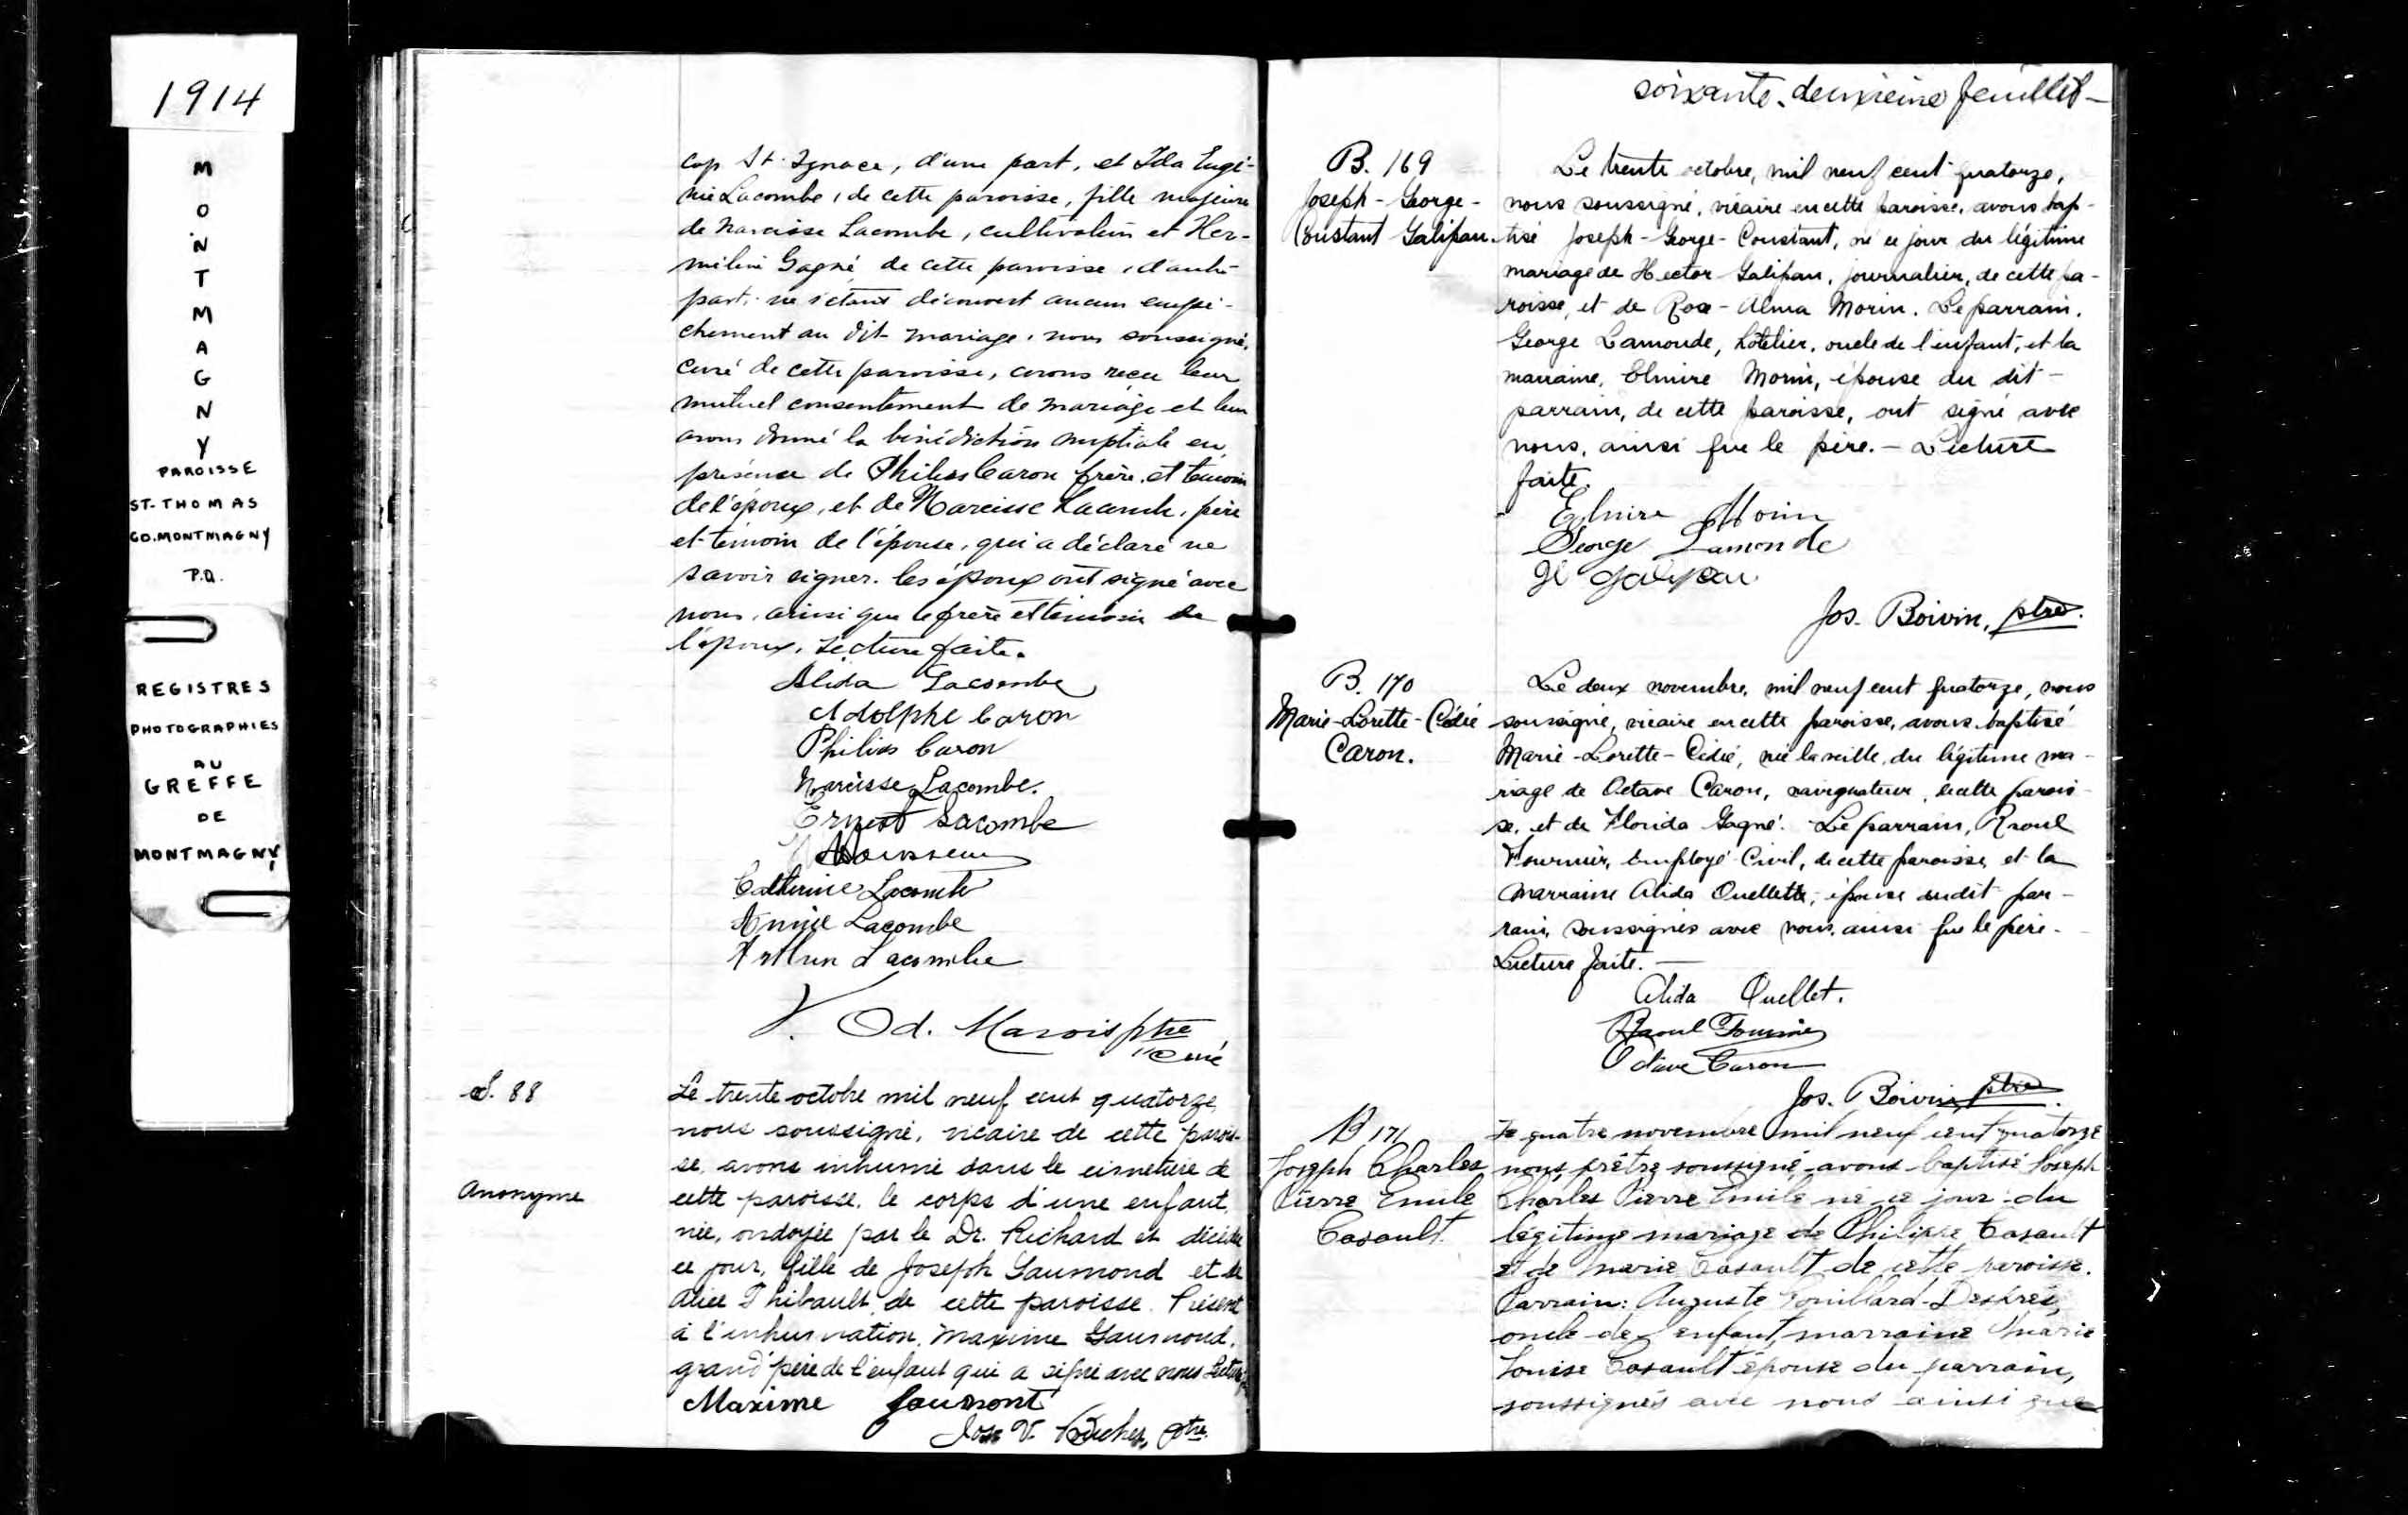 1914
MONTMAGNY
PAROISSE
ST-THOMAS
CO.MONTMAGNY
P.Q.
REGISTRES
PHOTOGRAPHIES
AU
GREFFE
DE
MONTMAGNY
Cap St-Ignace, d'une part, et Ida Eugé-
nie Lacombe, de cette paroisse, fille majeure
de Narcisse Lacombe, cultivateur et Her-
méline Gagné de cette paroisse, d'autre
part; ne s'étant découvert aucun empê-
chement au dit mariage, nous soussigné,
curé de cette paroisse, avons reçu leur
mutuel consentement de mariage et leur
avons donné la bénédiction nuptiale en
présence de Philias Caron frère et témoin
de l'époux, et de Narcisse Lacombe, père
et témoin de l'épouse, qui a déclaré ne
savoir signer. les époux ont signé avec
nous, ainsi que le frère et témoin de
l'époux. Lecture faite.
Alida Lacombe
Adolphe Caron
Philias Caron
Narcisse Lacombe.
Ernest Lacombe
Catherine Lacombe
Annie Lacombe
Arthur Lacombe
V. Od. Marois ptre
curé
S. 88
Anonyme
Le trente octobre mil neuf cent quatorze
nous soussigné, vicaire de cette parois-
se, avons inhumé dans le cimetière de
cette paroisse, le corps d'une enfant,
née, ondoyée par le Dr. Richard et décédée
ce jour, fille de Joseph Gaumond et de
Alice Thibault de cette paroisse. Présent
à l'inhumation, Maxime Gaumond,
grand'père de l'enfant qui a signé avec nous Lecture
Maxime Gaumont
Jos V. ptre.
soixante-deuxième feuillet-
B. 169
Joseph-George-
Constant Galipau.
Le trente octobre, mil neuf cent quatorze,
nous soussigné, vicaire en cette paroisse, avons bap-
tisé Joseph-George-Constant, né ce jour du légitime
mariage de Hector Galipau, journalier, de cette pa-
roisse, et de Rose-Alma Morin. Le parrain,
George Lamonde, hôtelier, oncle de l'enfant, et la
marraine, Elmire Morin, épouse du dit-
parrain, de cette paroisse, ont signé avec
nous, ainsi que le père. - Lecture
faite.
Elmire Morin
George Lamonde
H Galipau
Jos. Boivin, ptre.
B. 170
Marie-Lorette-Cédié
Caron.
Le deux novembre, mil neuf cent quatorze, nous
soussigné, vicaire en cette paroisse, avons baptisé
Marie-Lorette-Cédié, née la veille, du légitime ma-
riage de Octave Caron, navigateur, de cette parois-
se, et de Florida Gagné. Le parrain, Raoul
Fournier, Employé Civil, de cette paroisse, et la
marraine Alida Ouellette, épouse du dit par-
rain, soussignés avec nous, ainsi que le père.
Lecture faite. -
Alida Ouellet.
Raoul Fournier
Octave Caron
Jos. Boivin, ptre.
B 171
Joseph Charles
Pierre Emile
Casault.
Le quatre novembre mil neuf cent quatorze
nous, prêtre soussigné, avons baptisé Joseph
Charles Pierre Emile né ce jour du
légitime mariage de Philippe Casault
et de Marie Casault de cette paroisse.
Parrain: Auguste Fouillard-Després,
oncle de l'enfant, marraine Marie
Louise Casault épouse du parrain,
soussignés avec nous ainsi que